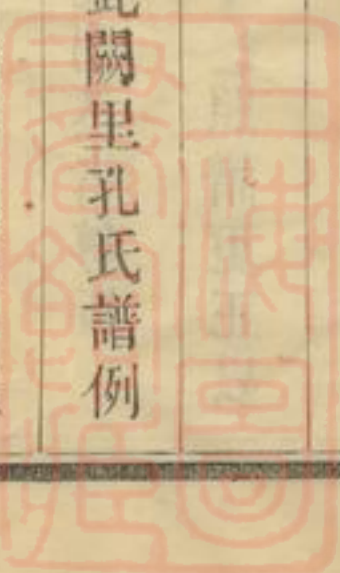 此闕里孔氏譜例